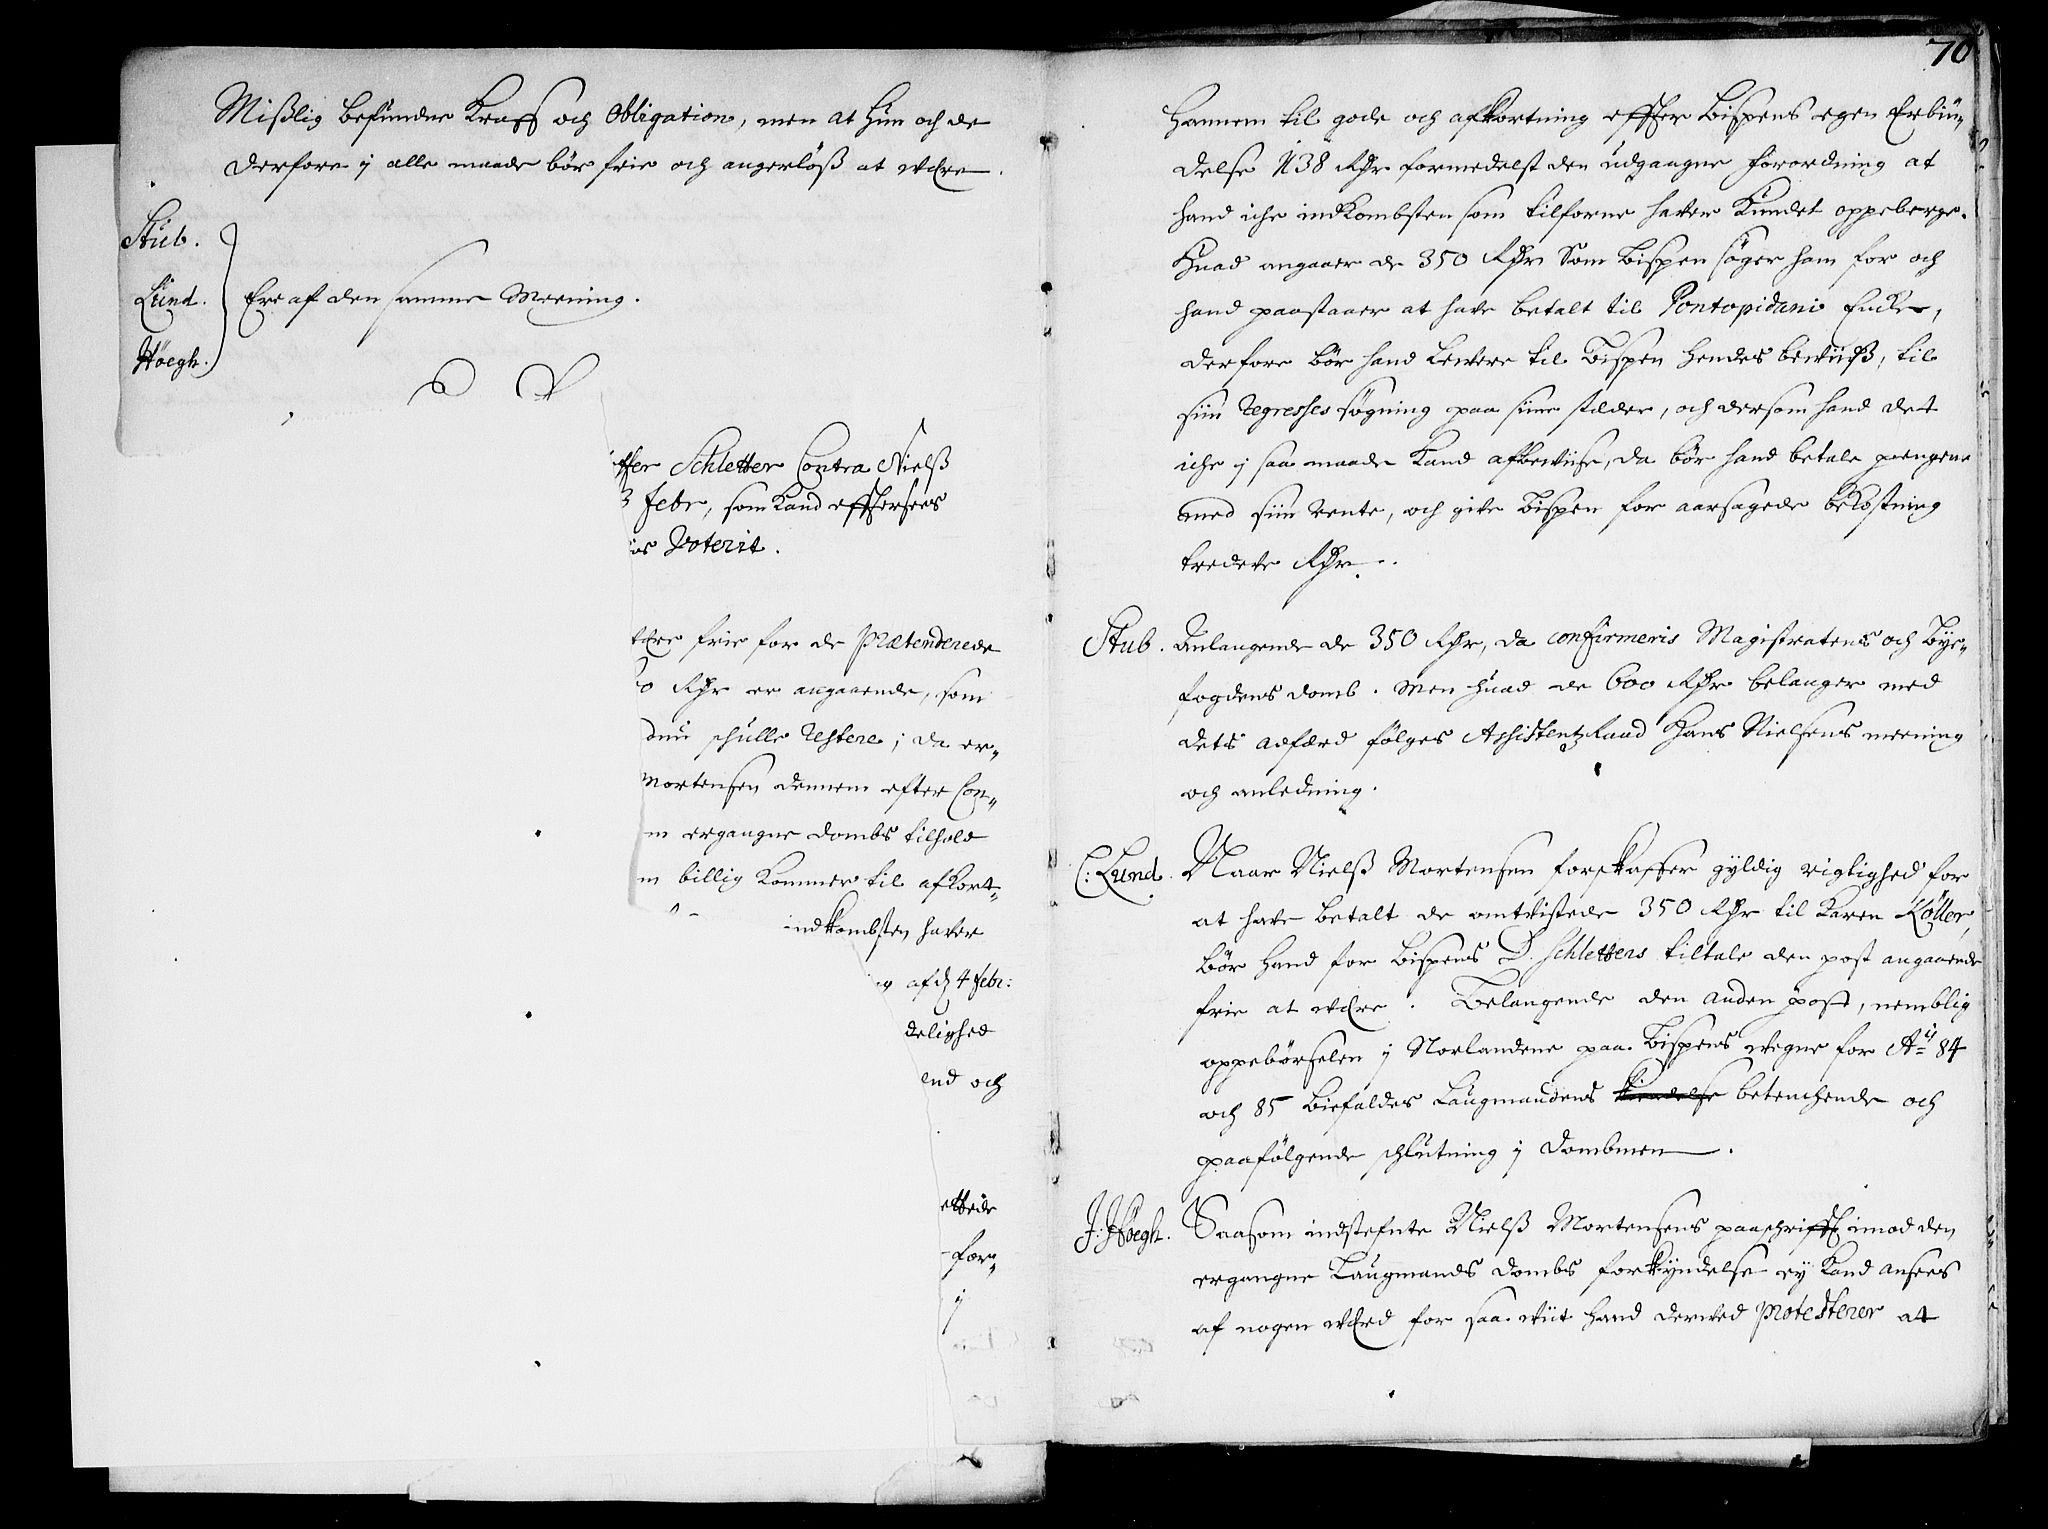 Mißlig befunden Kraff och Obligation, men at hun och de
derfore j alle maade bør frie och angerlöß at være.
Stub.
Lund. Ere af den samme Meening.
Höegh.
ffer Schletter Contra Nielß
3 febr, som kand effthersees
Voterit.
være frie for de Prætenderede
0 Rdr er angaaende, som
schulle Restere; da er-
Mortensen dennem efter Con-
ergangne dombs tilhold
billig kommer til afkort-
indkombsten haver
af d 4 febr:
delighed
end och
ettede
for-
j
70
hannem til gode och afkortning effther Bispens egen Erbiu-
delse 1138 Rdr formedelst den udgangne forordning at
hand iche indkombsten som tilforne haver kundet oppeberge.
Huad angaaer de 350 Rdr som Bispen söger ham for och
hand paastaaer at have betalt til Pontopidani Encke,
derfore bör hand levere til Bispen hendes beviiß, til
siin Regresses søgning paa siine stæder, och dersom hand det
iche j saa maade kand afbeviise, da bör hand betale pengene
med siin rente, och give Bispen for aarsagede bekostning
tredeve Rdr.
Stub. Anlangende de 350 Rdr, da confirmeris Magistratens och Bye-
fogdens domb. Men huad de 600 Rdr belanger med
dets adfærd fölges Assistentz Raad Hans Nielsens meening
och anledning.
C: Lund. Naar Nielß Mortensen forskaffer gyldig rigtighed for
at have betalt de omtvistede 350 Rdr til Karen Köller,
bör hand for Bispens D. Schletters tiltale den post angaaende
frie at være. Belangende den anden post, nemblig
oppebörselen j Norlandene paa Bispens vegne for Aō 84
och 85 biefaldes Laugmandens kiendelse betenchende och
paafölgende schlutning j dombmen.
J: Höegh. Saasom indstefnte Nielß Mortensens paaschrifft imod den
ergangne Laugmands dombs forkyndelse ey kand ansees
af nogen værd for saa viit hand derved Protesterer at